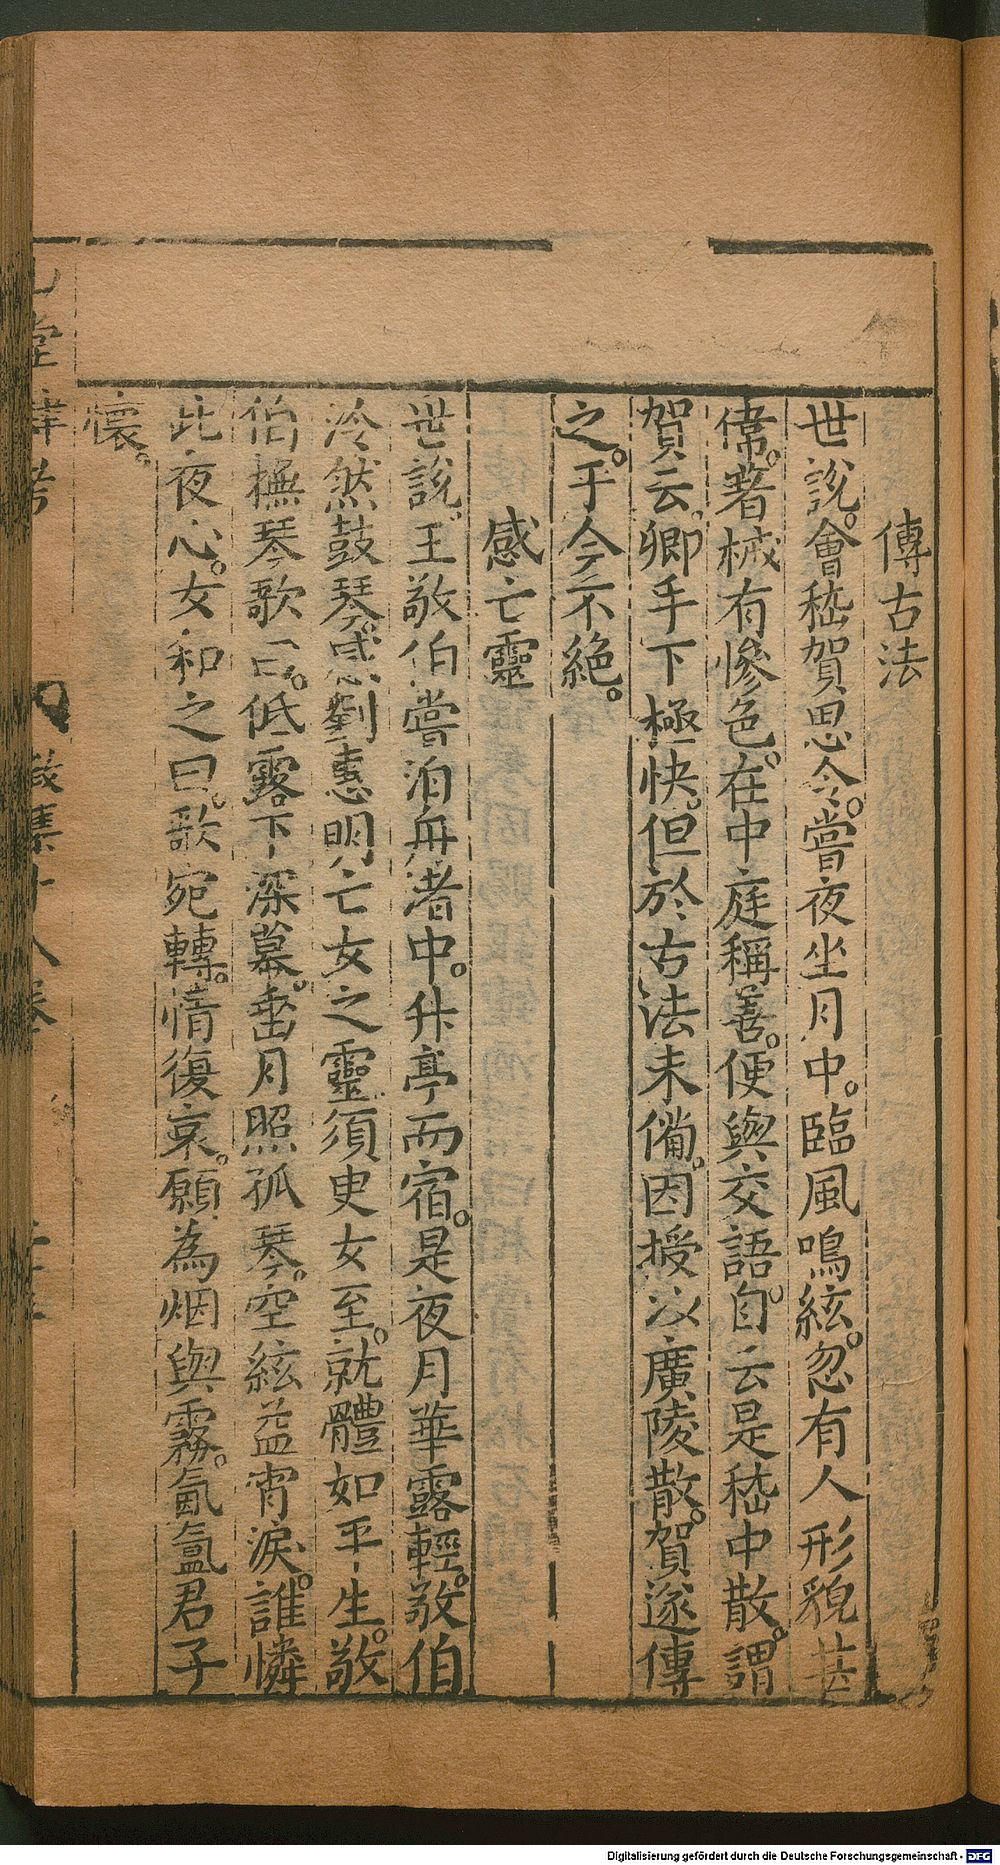 傳古法
世說。會嵇賀思令。嘗夜坐月中。臨風鳴絃。忽有人形貌甚
偉。著械有慘色。在中庭稱善。便與交語。自云是嵇中散。謂
賀云。卿手下極快。但於古法未備。因授以廣陵散。賀遂傳
之。乎今不絶。
感亡靈
世說。王敬伯嘗泊舟渚中。升亭而宿。是夜月華露輕。敬伯
泠然鼓琴。感劉惠明亡女之靈。須臾女至。就體如平生。敬
伯撫琴歌曰。低露下深幕。垂月照孤琴。空絃益宵淚。誰憐
此夜心。女和之曰。歌宛轉。情復哀。願為烟與霧。氤氳君子
懷。
堂
集十八卷
Digitalisierung gefördert durch die Deutsche Forschungsgemeinschaft - DFG